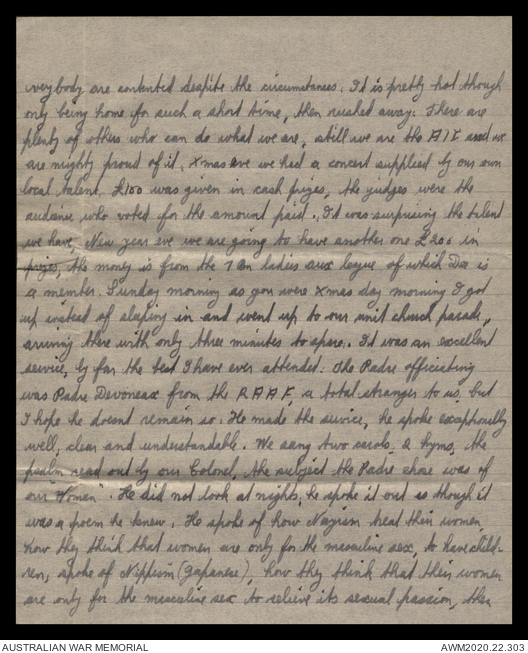 everybody are contented despite the circumstances. It is pretty hot though
only being home for such a short time, then rushed away. There are
plenty of others who can do what we are, still we are the AIF and we
are mighty proud of it. Xmas eve we had a concert supplied by our own
local talent. £100 was given in cash prizes, the judges were the
audience who voted for the amount paid. It was surprising the talent
we have, New year eve we are going to have another one £200 in
prizes, the money is from the 7 Bn ladies aux league of which Dee is
a member. Sunday morning as you were Xmas day morning I got
up instead of sleeping in and went up to our unit church parade,
arriving there with only three minutes to spare. It was an excellent
service, by far the best I have ever attended. The Padre officiating
was Padre from the RAAF, a total stranger to us, but
I hope he doesnt remain so. He made the service, he spoke exceptionally
well, clear and understandable. We sang two carols, 2 hyms, the
psalm read out by our Colonel, the subject the Padre chose was of
our "Women". He did not look at nights, he spoke it out as though it
was a poem he knew. He spoke of how Nazism treat their women,
how they think that women are only for the masculine sex, to have child-
ren, spoke of Nippism (Japanese), how they think that their women
are only for the masculine sex to relieve its sexual passion, then
AUSTRALIAN WAR MEMORIAL
AWM2020.22.303